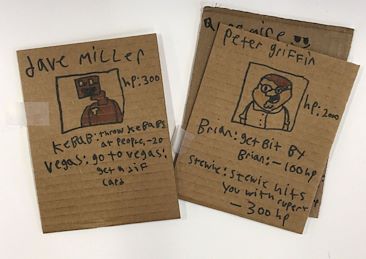 dave miller
hp: 300
KEBAB: throw KEBABS
at people, -20
Vegas: go to vegas,
get a
card
peter griffin
hp: 2000
Brian: get Bit By
Brian: -100 hp
Stewie: stewie hits
you with rupert
-300 hp